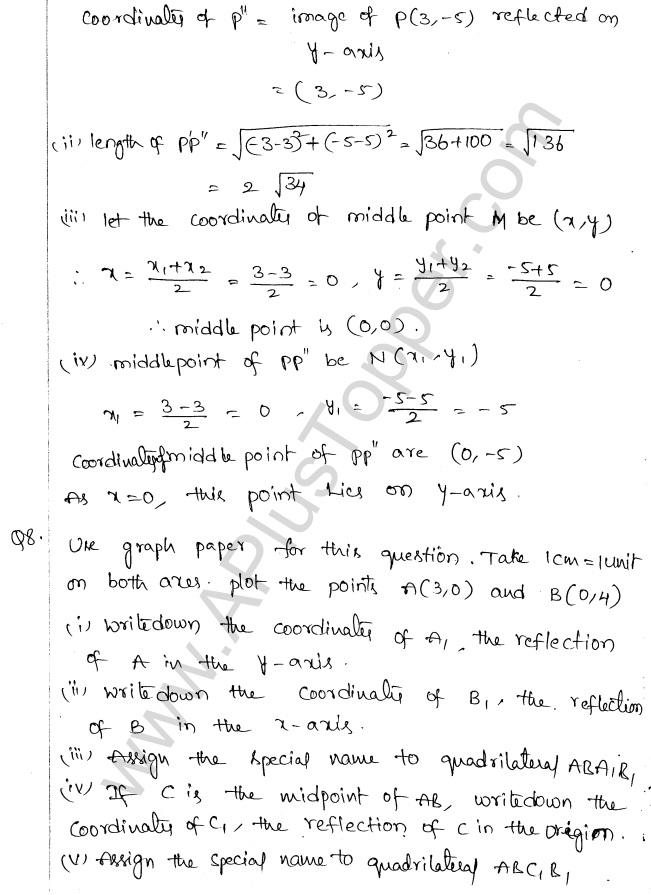 Coordinates of P'' = image of P(3,-5) reflected on
y-axis
= (3,-5)
(ii) length of P'P'' = √(-3-3)²+(-5-5)² = √36+100 = √136
= 2 √34
(iii) let the coordinates of middle point M be (x,y)
∴ x = x₁+x₂/2 = 3-3/2 = 0, y = y₁+y₂/2 = -5+5/2 = 0
∴ middle point is (0,0).
(iv) middlepoint of PP'' be N(x₁,y₁)
x₁ = 3-3/2 = 0, y₁ = -5-5/2 = -5
Coordinates of middle point of PP'' are (0,-5)
As x=0, this point lies on y-axis.
Q8. Use graph paper for this question. Take 1cm=1unit
on both axes. plot the points A(3,0) and B(0,4)
(i) writedown the coordinates of A₁, the reflection
of A in the y-axis.
(ii) writedown the coordinates of B₁, the reflection
of B in the x-axis.
(iii) Assign the special name to quadrilateral ABA₁B₁
(iv) If C is the midpoint of AB, writedown the
coordinates of C₁, the reflection of C in the origion.
(v) Assign the special name to quadrilateral ABC₁B₁
www.APlusTopper.com